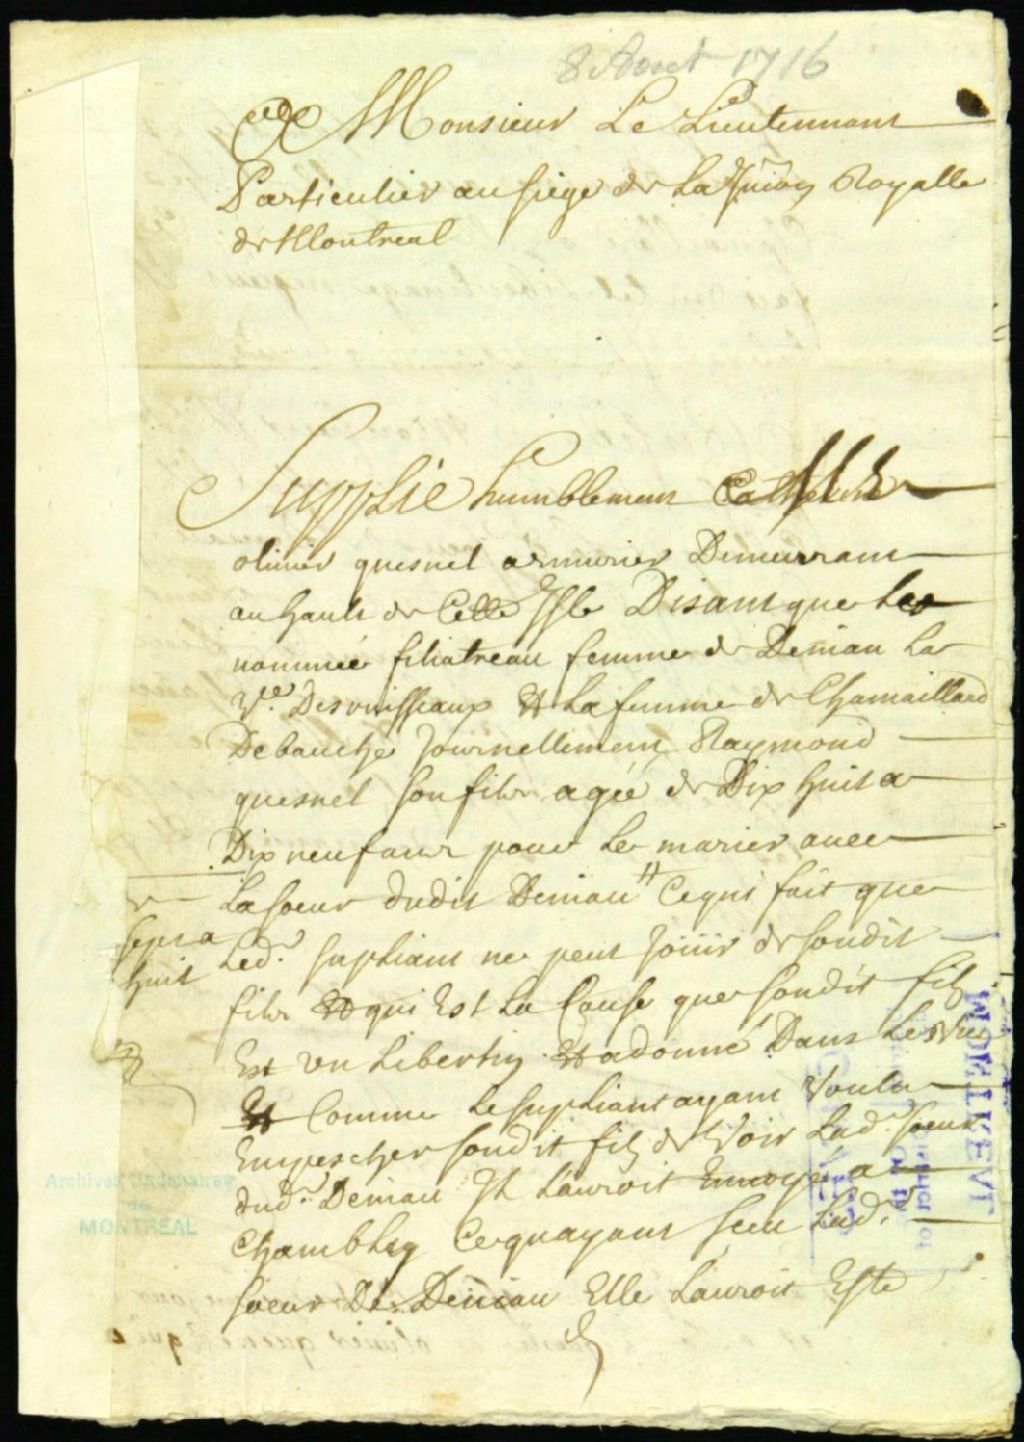 8 Aout 1716
A Monsieur Le Lieutennant
Particulier au siege de La Juion Royalle
de Montreal
Supplie humblement
olivier quesnel armurier Demeurant
au hault de Cette Isle Disant que La
nommée filiatreau femme de Deniau La
Ve. Desruisseaux Et La femme de Chamaillard
Debauche Journellement Raymond
quesnel son fils agée de Dix huit a
Dix neuf ans pour Le marier avec
La soeur dudit Deniau Ce qui fait que
Led. supliant ne peut Joüir de sondit
fils Et qui Est La Cause que sondit fils
Est un Libertin Et adonné Dans Le vin
Et Comme Le supliant ayant Voulu
Empescher sondit fils de Voir Lad. soeur
dud. Deniau Il L'auroit Envoyé a
Chambly Ce quayant sceu Lad.
soeur De Deniau Elle L'auroit Esté
sept a
huit
Archives Judiciaires
de
MONTREAL